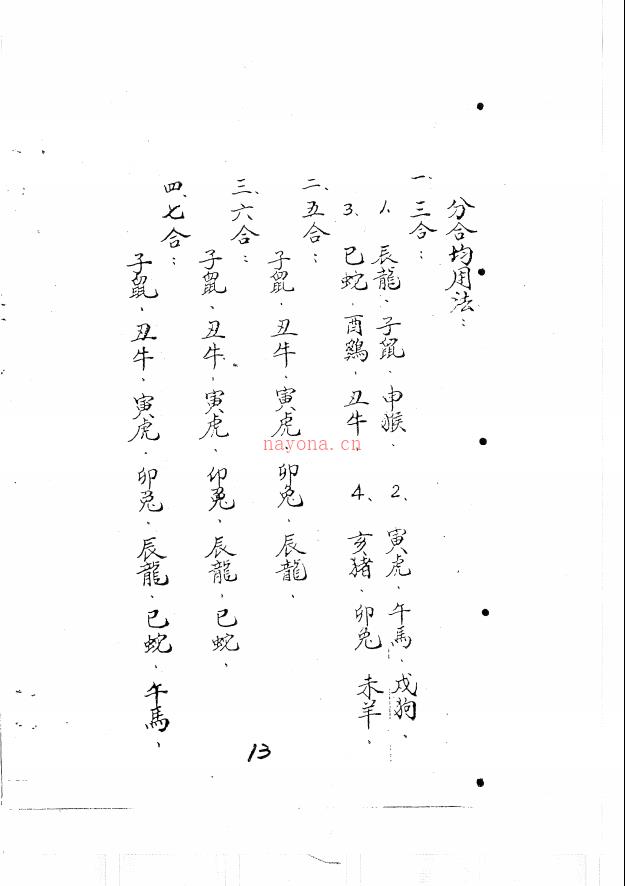 分合均用法：
一、三合：
1、辰龍、子鼠、申猴、 2、寅虎、午馬、戌狗、
3、巳蛇、酉鷄、丑牛、 4、亥豬、卯兔 未羊、
二、五合：
子鼠、丑牛、寅虎、卯兔、辰龍、
三、六合：
子鼠、丑牛、寅虎、卯兔、辰龍、巳蛇、
四、七合：
子鼠、丑牛、寅虎、卯兔、辰龍、巳蛇、午馬、
13
nayona.cn